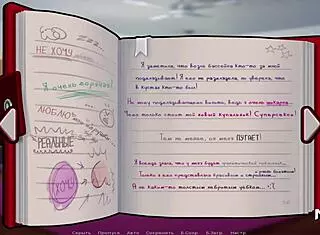 НЕ ХОЧУ
Я очень горячая!
ЛЮБЛЮ
РЕАЛЬНЫЕ
ХОЧУ
Я заметила, что возле бассейна кто-то за мной
подглядывает! Я его не разглядела, но уверена, что
в кустах кто-то был!
Не могу подглядывающего винить, ведь я очень шикарна...
Чего только стоит мой новый купальник! Суперсекси!
Тем не менее, он меня ПУГАЕТ!
Я всегда знала, что у меня будет
Только я его представляла красивым и стройным...
А не каким-то толстым небритым уебком... :'(
Скрыть Пропуск Авто Сохранить Б.Сохр Б.Загр Настр